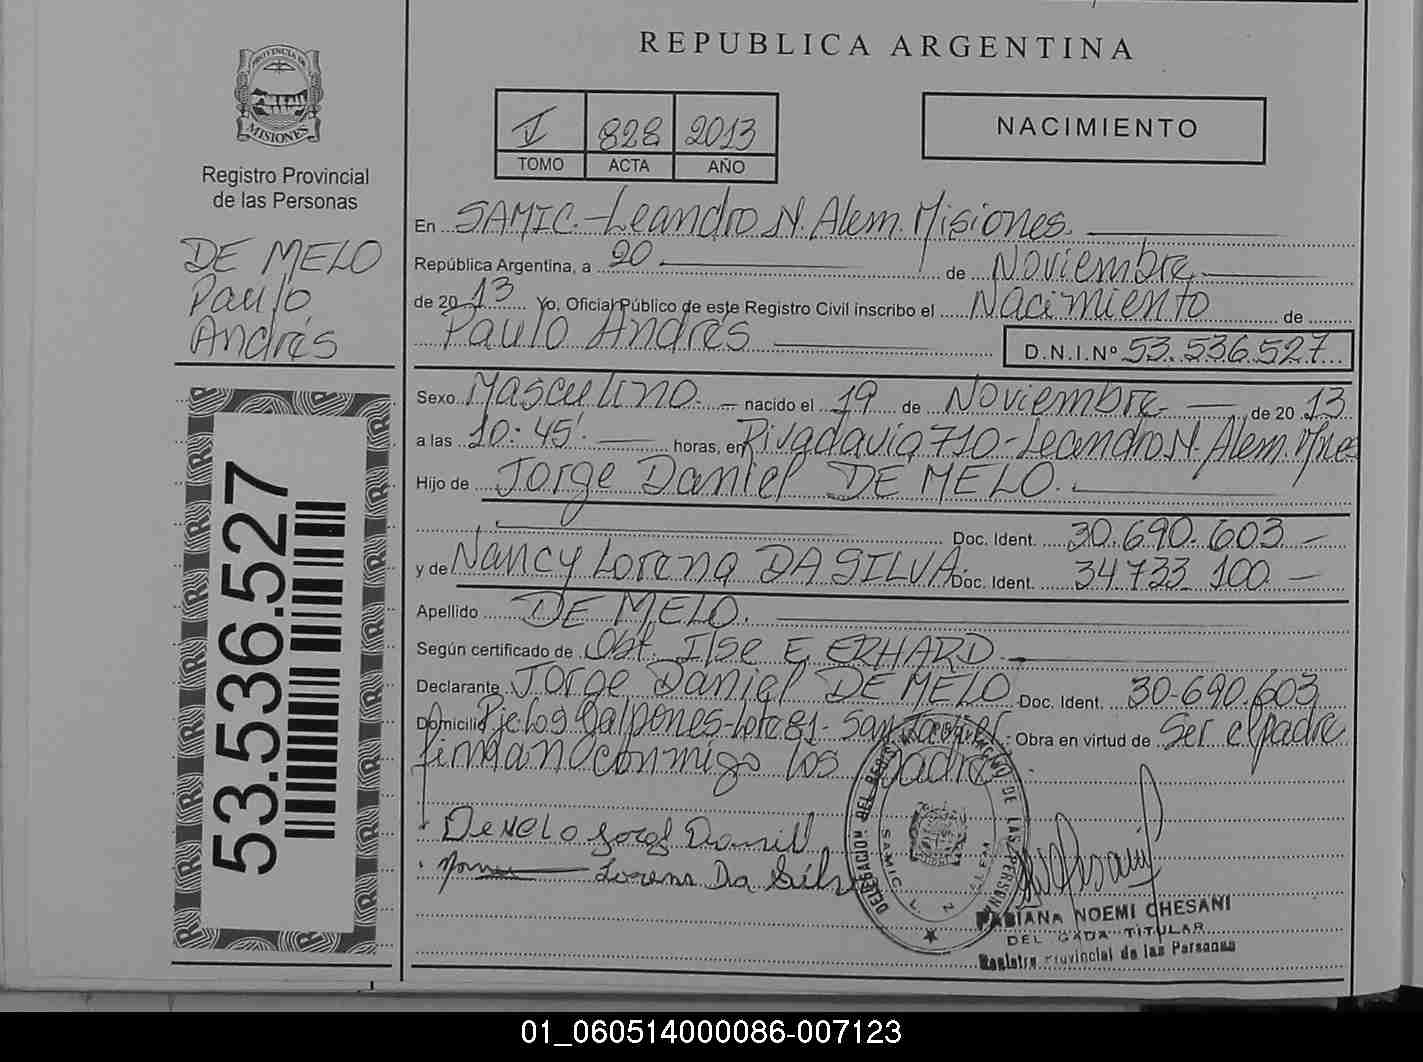 REPUBLICA ARGENTINA
PROVINCIA DE
MISIONES
Registro Provincial
de las Personas
DE MELO
Paulo
Andrés
53.536.527
828 2013
TOMO ACTA AÑO
NACIMIENTO
En SAMIC.-Leandro N. Alem. Misiones.
República Argentina, a 20 de Noviembre
de 2013 Yo, Oficial Público de este Registro Civil inscribo el Nacimiento de
Paulo Andrés D.N.I.Nº 53.536.527
Sexo Masculino. nacido el 19 de Noviembre de 2013
a las 10:45'. horas, en Rivadavia 710-Leandro N. Alem. Mnes
Hijo de Jorge Daniel DE MELO.
Doc. Ident. 30.690.603
y de Nancy Lorena DA SILVA. Doc. Ident. 34.733.100
Apellido DE MELO.
Según certificado de Obst. Ilse E. ERHARD
Declarante Jorge Daniel DE MELO Doc. Ident. 30-690.603
Domicilio Pje Los Galpones-Lote 81- San Javier. Obra en virtud de Ser el padre
firman conmigo los padres
De Melo Jorge Daniel
Lorena Da Silva
DELEGACION DEL REGISTRO PROVINCIAL DE LAS PERSONAS
SAMIC
FABIANA NOEMI CHESANI
DELEGADA TITULAR
Registro Provincial de las Personas
01_060514000086-007123